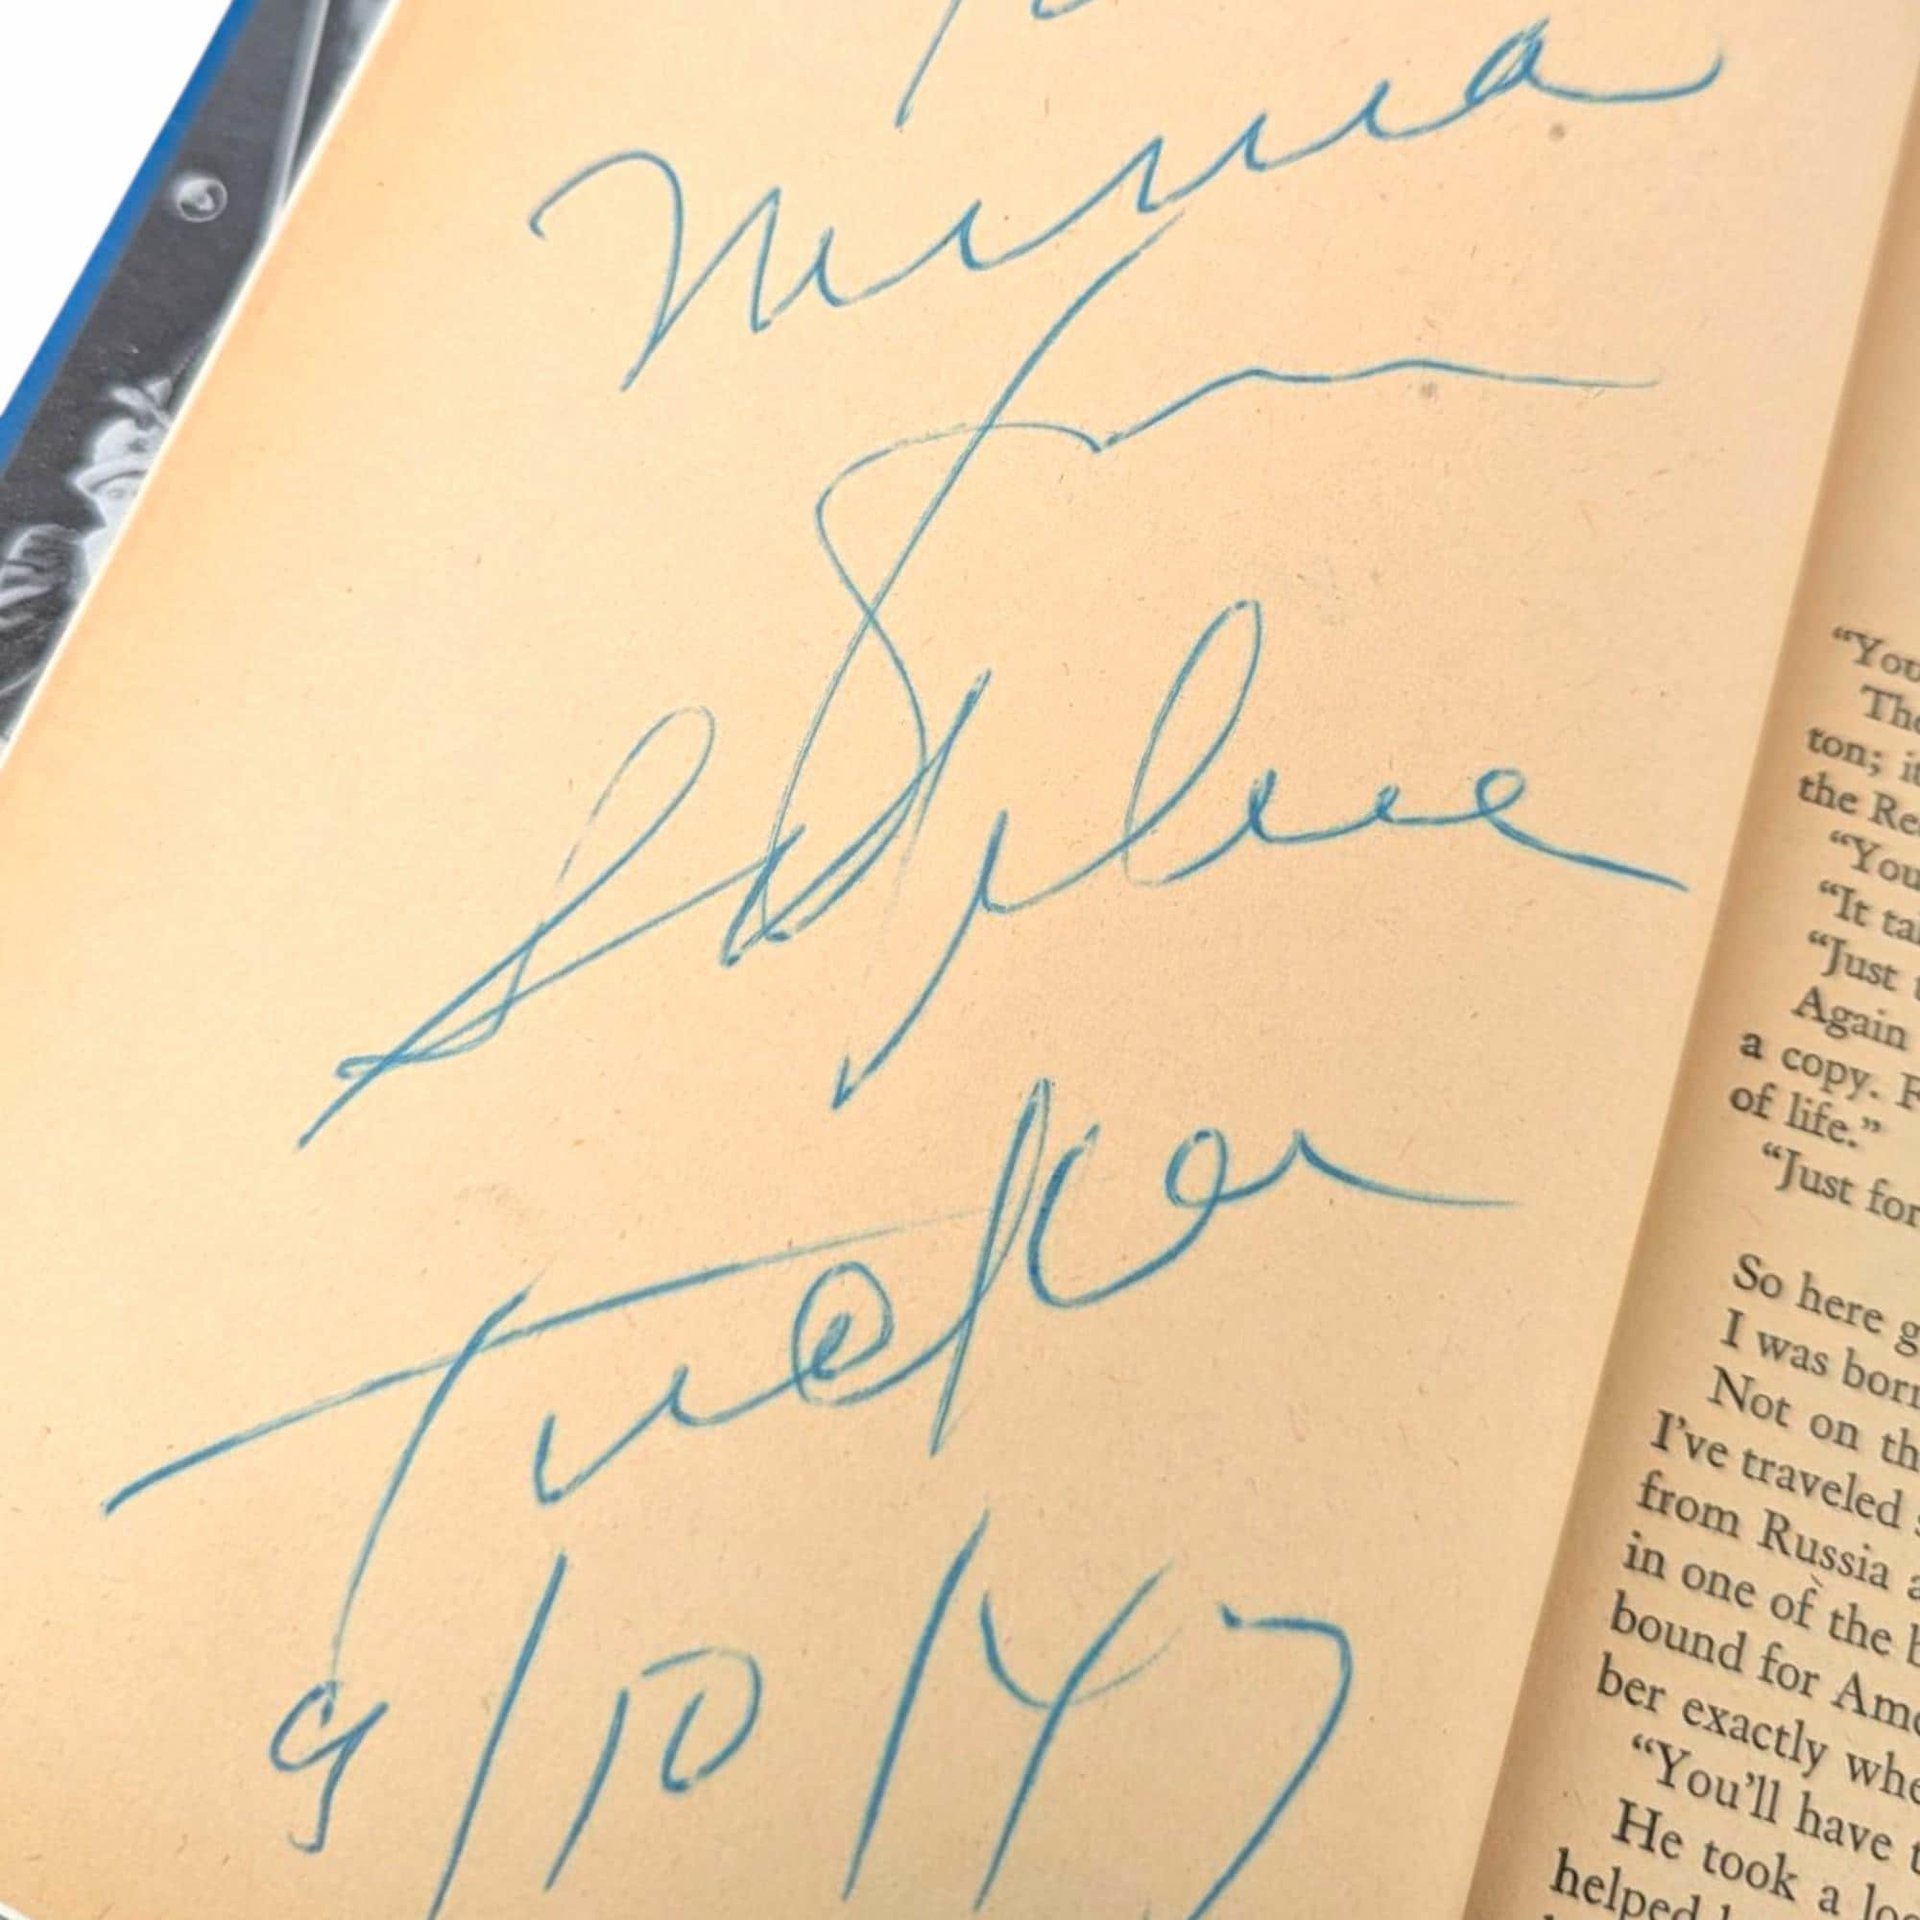 Sophie
Tucker
9/10/47
“You
The
ton; i
the Re
“You
“It ta
“Just t
Again
a copy. F
of life.”
“Just for
So here g
I was born
Not on th
I’ve traveled
from Russia a
in one of the b
bound for Ame
ber exactly whe
“You’ll have t
He took a loo
helped